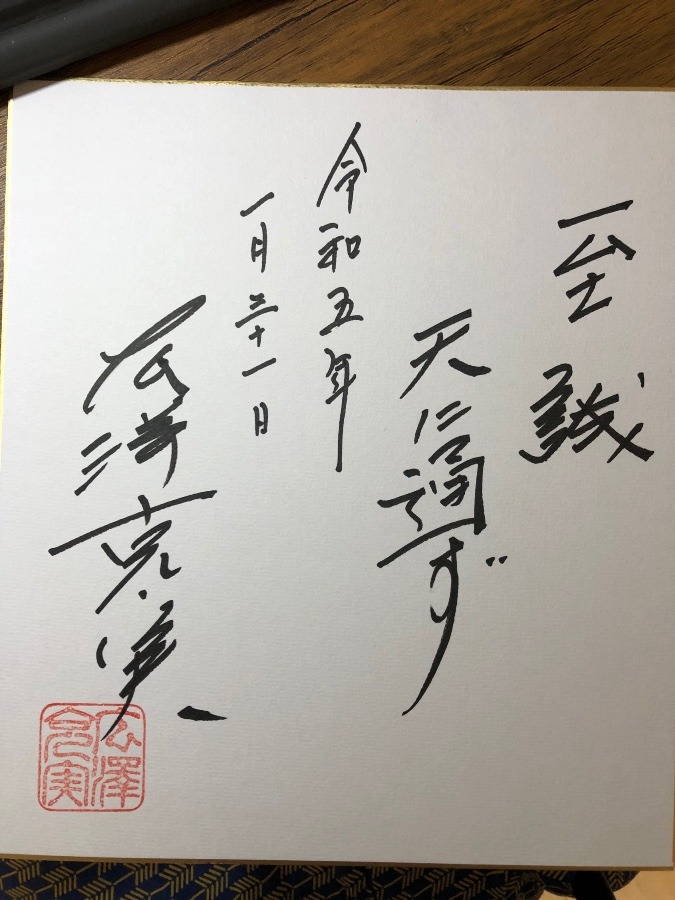 至誠
天に通ず
令和五年
一月三十一日
広澤克実
広澤
克実